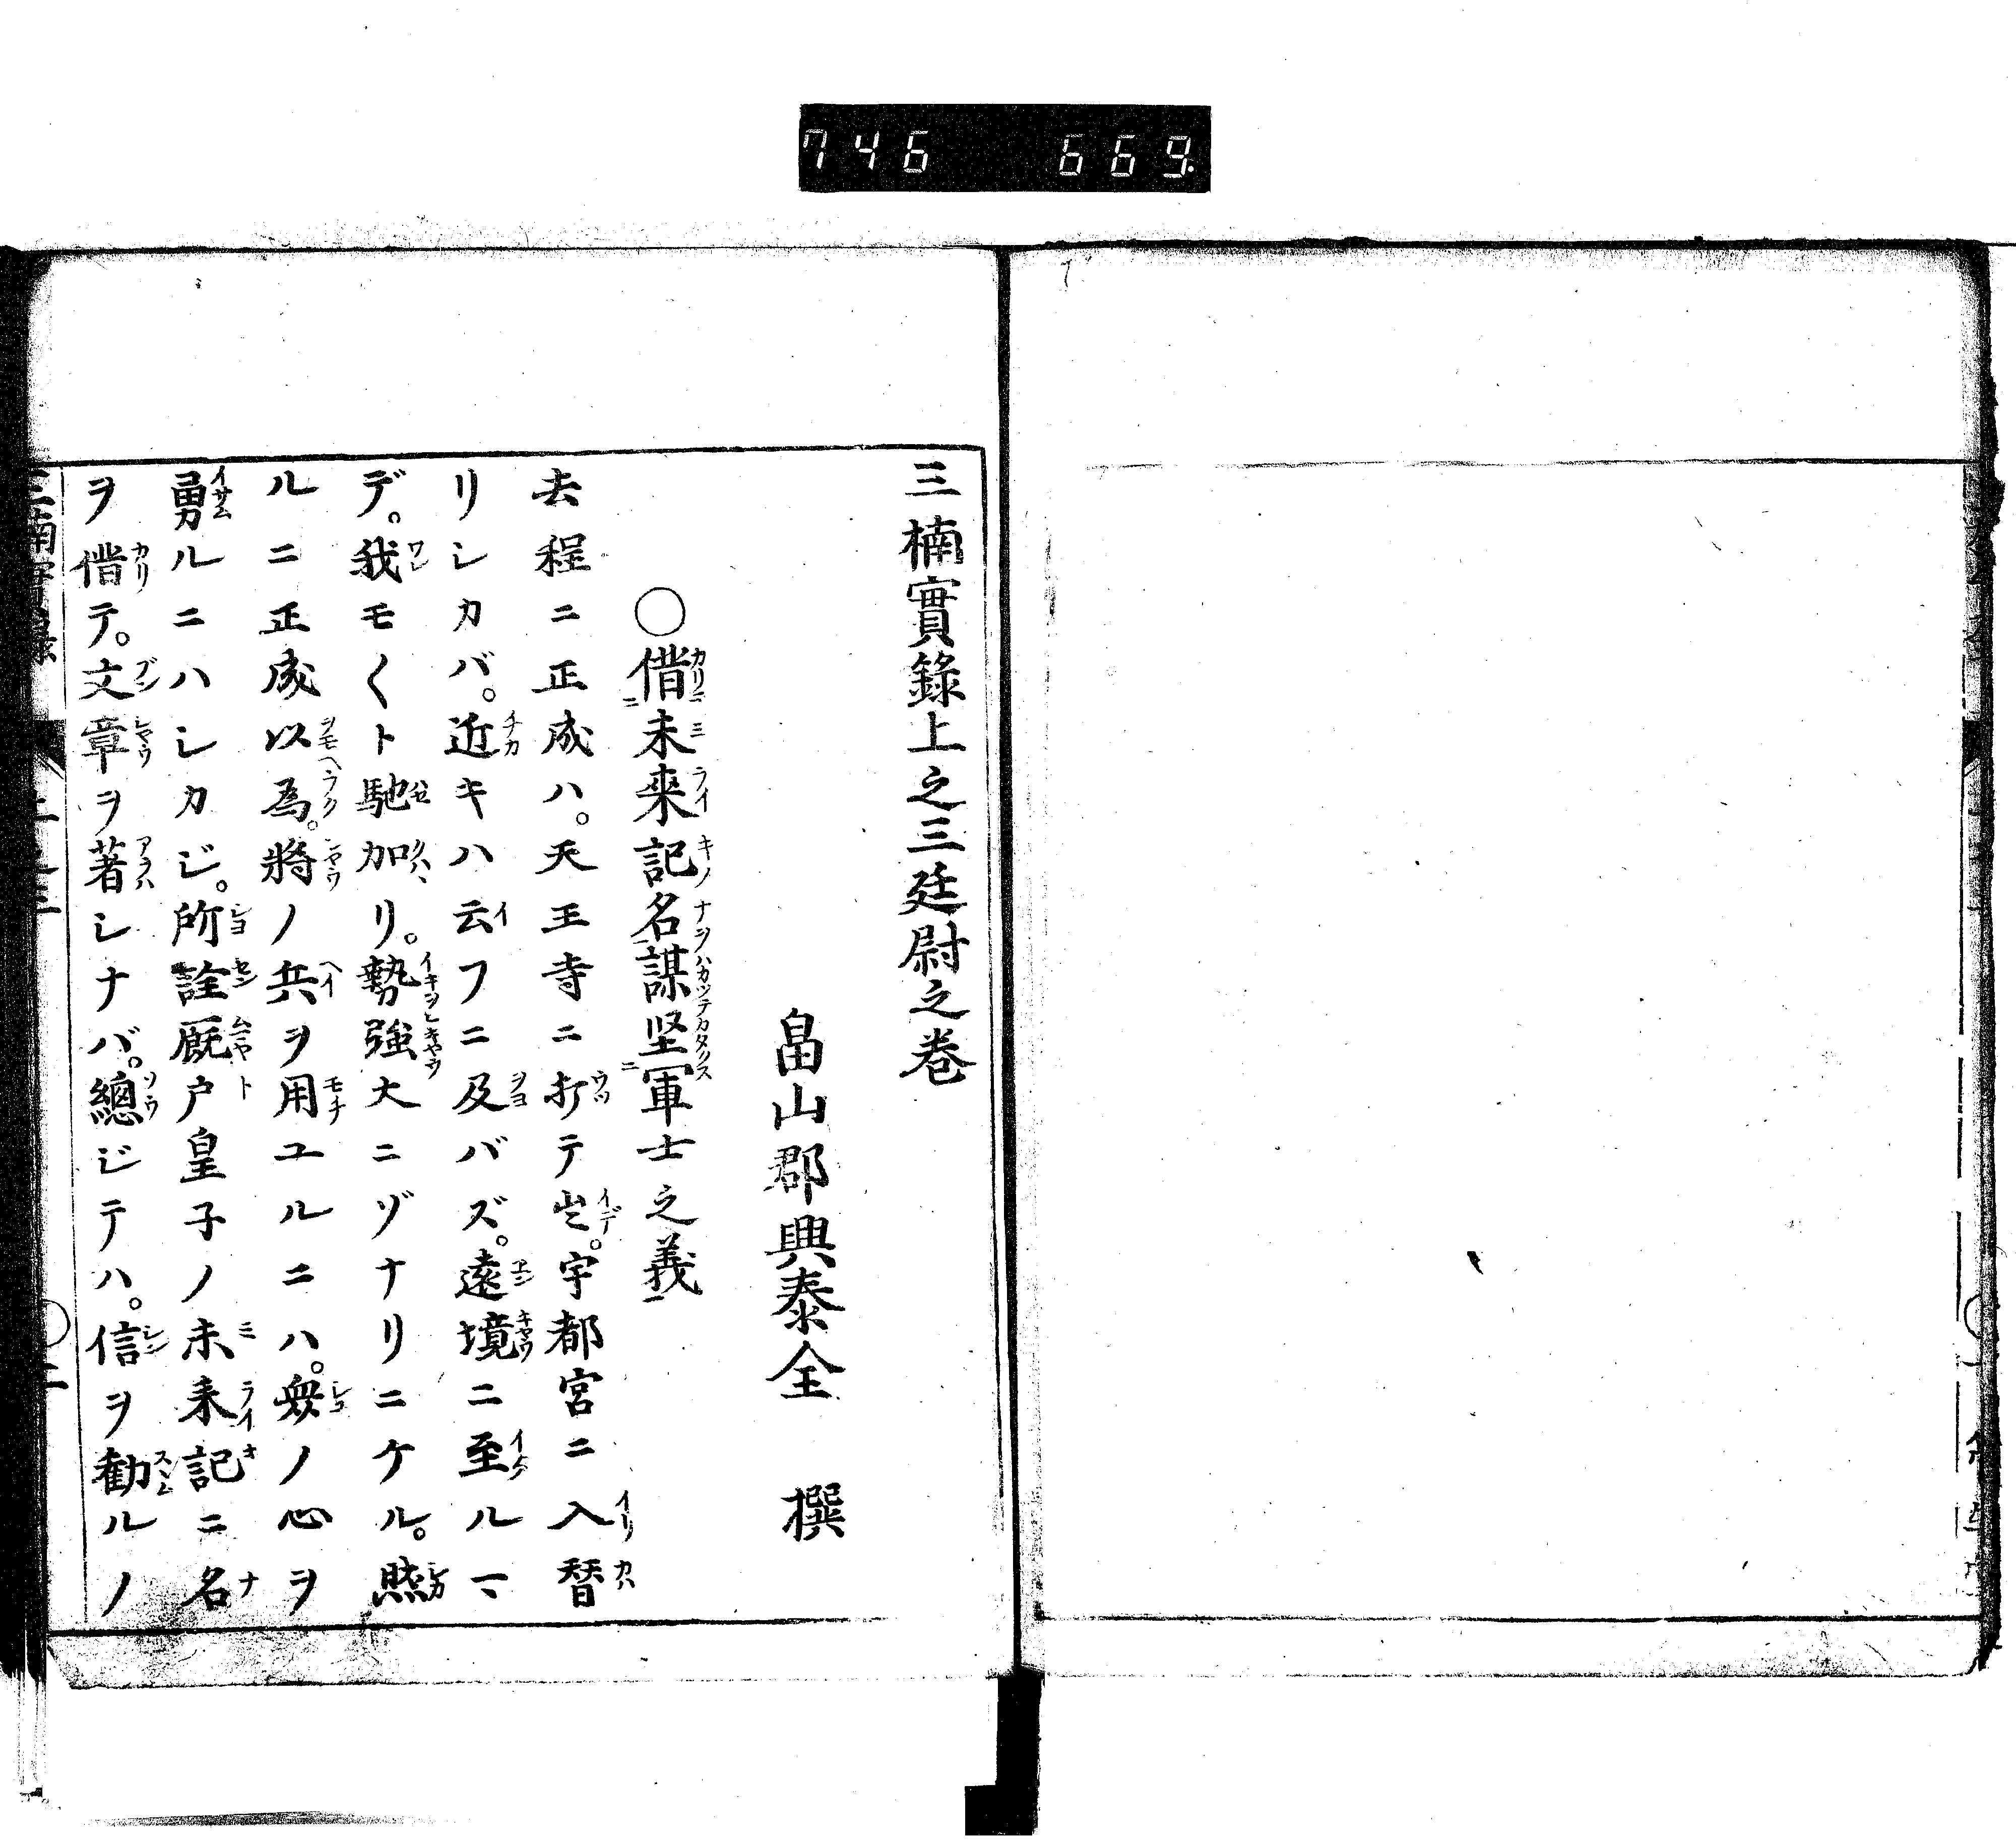 746 669.
三楠實錄上之三廷尉之巻
畠山郡興泰全 撰
○借未來記名謀堅軍士之義
去程ニ正成ハ。天王寺ニ打テ出。宇都宮ニ入替
リシカバ。近キハ云フニ及バズ。遠境ニ至ルマ
デ。我モ〱ト馳加リ。勢強大ニゾナリニケル。然
ルニ正成以為。將ノ兵ヲ用ユルニハ。衆ノ心ヲ
勇ルニハシカジ。所詮厩戸皇子ノ未来記ニ名
ヲ借テ。文章ヲ著シナバ。總ジテハ。信ヲ勧ルノ